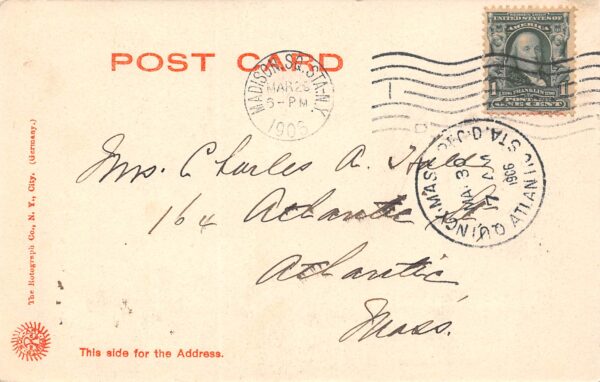 POST CARD
MADISON SQ. STA. N.Y.
MAR 29
6-PM
1906
UNITED STATES OF
AMERICA
FRANKLIN
POSTAGE
ONE CENT
QUINCY, MASS.
ATLANTIC STA.
1906
Mrs. Charles A.
164 Atlantic St.
Atlantic,
Mass.
The Rotograph Co., N. Y., City. (Germany.)
This side for the Address.